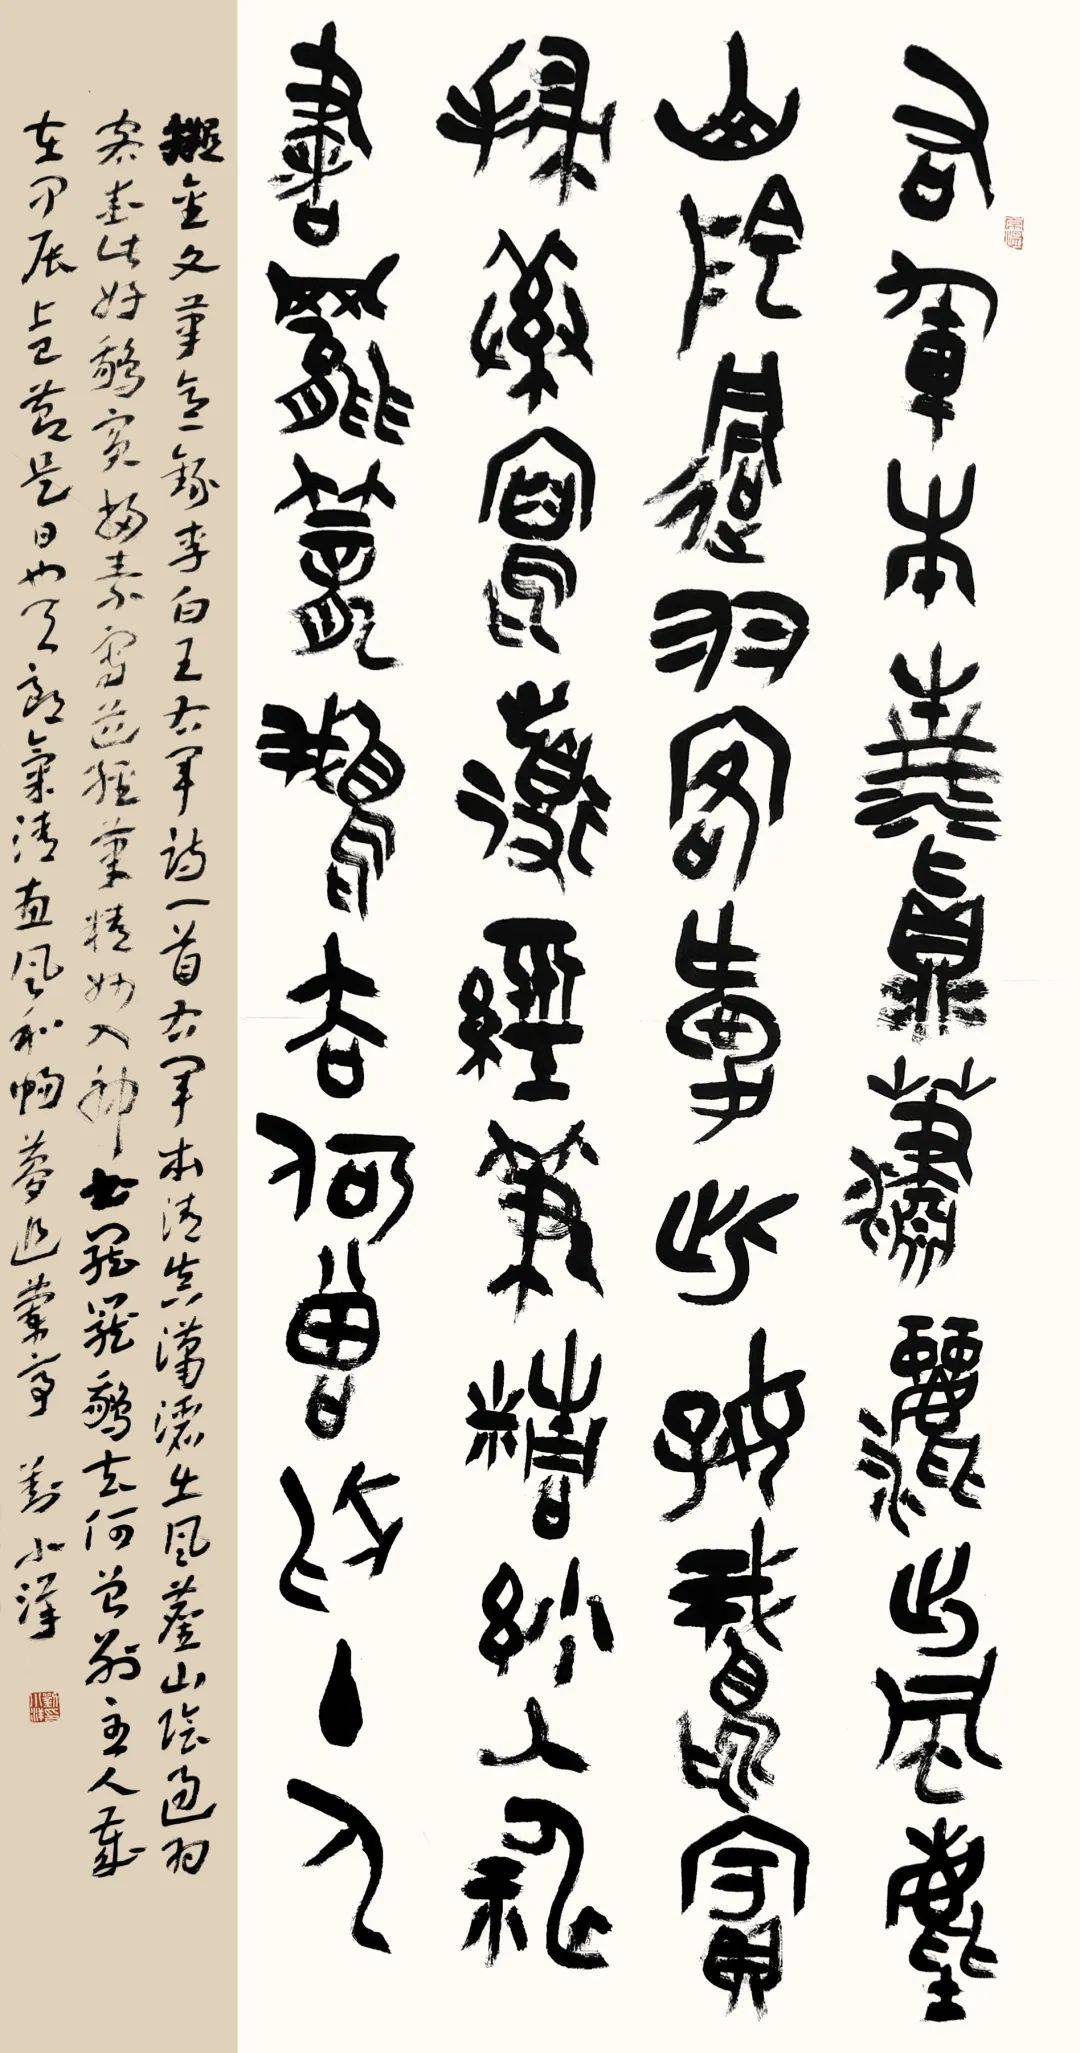 右軍本清真瀟灑出風塵
山陰過羽客愛此好鵝賓
掃素寫道經筆精妙入神
書罷籠鵝去何曾別主人
擬金文筆意錄李白王右軍詩一首右軍本清真瀟灑出風塵山陰過羽
客愛此好鵝賓掃素寫道經筆精妙入神書罷籠鵝去何曾別主人歲
在甲辰上巳節是日也天朗氣清惠風和暢夢追蘭亭 劉小洋